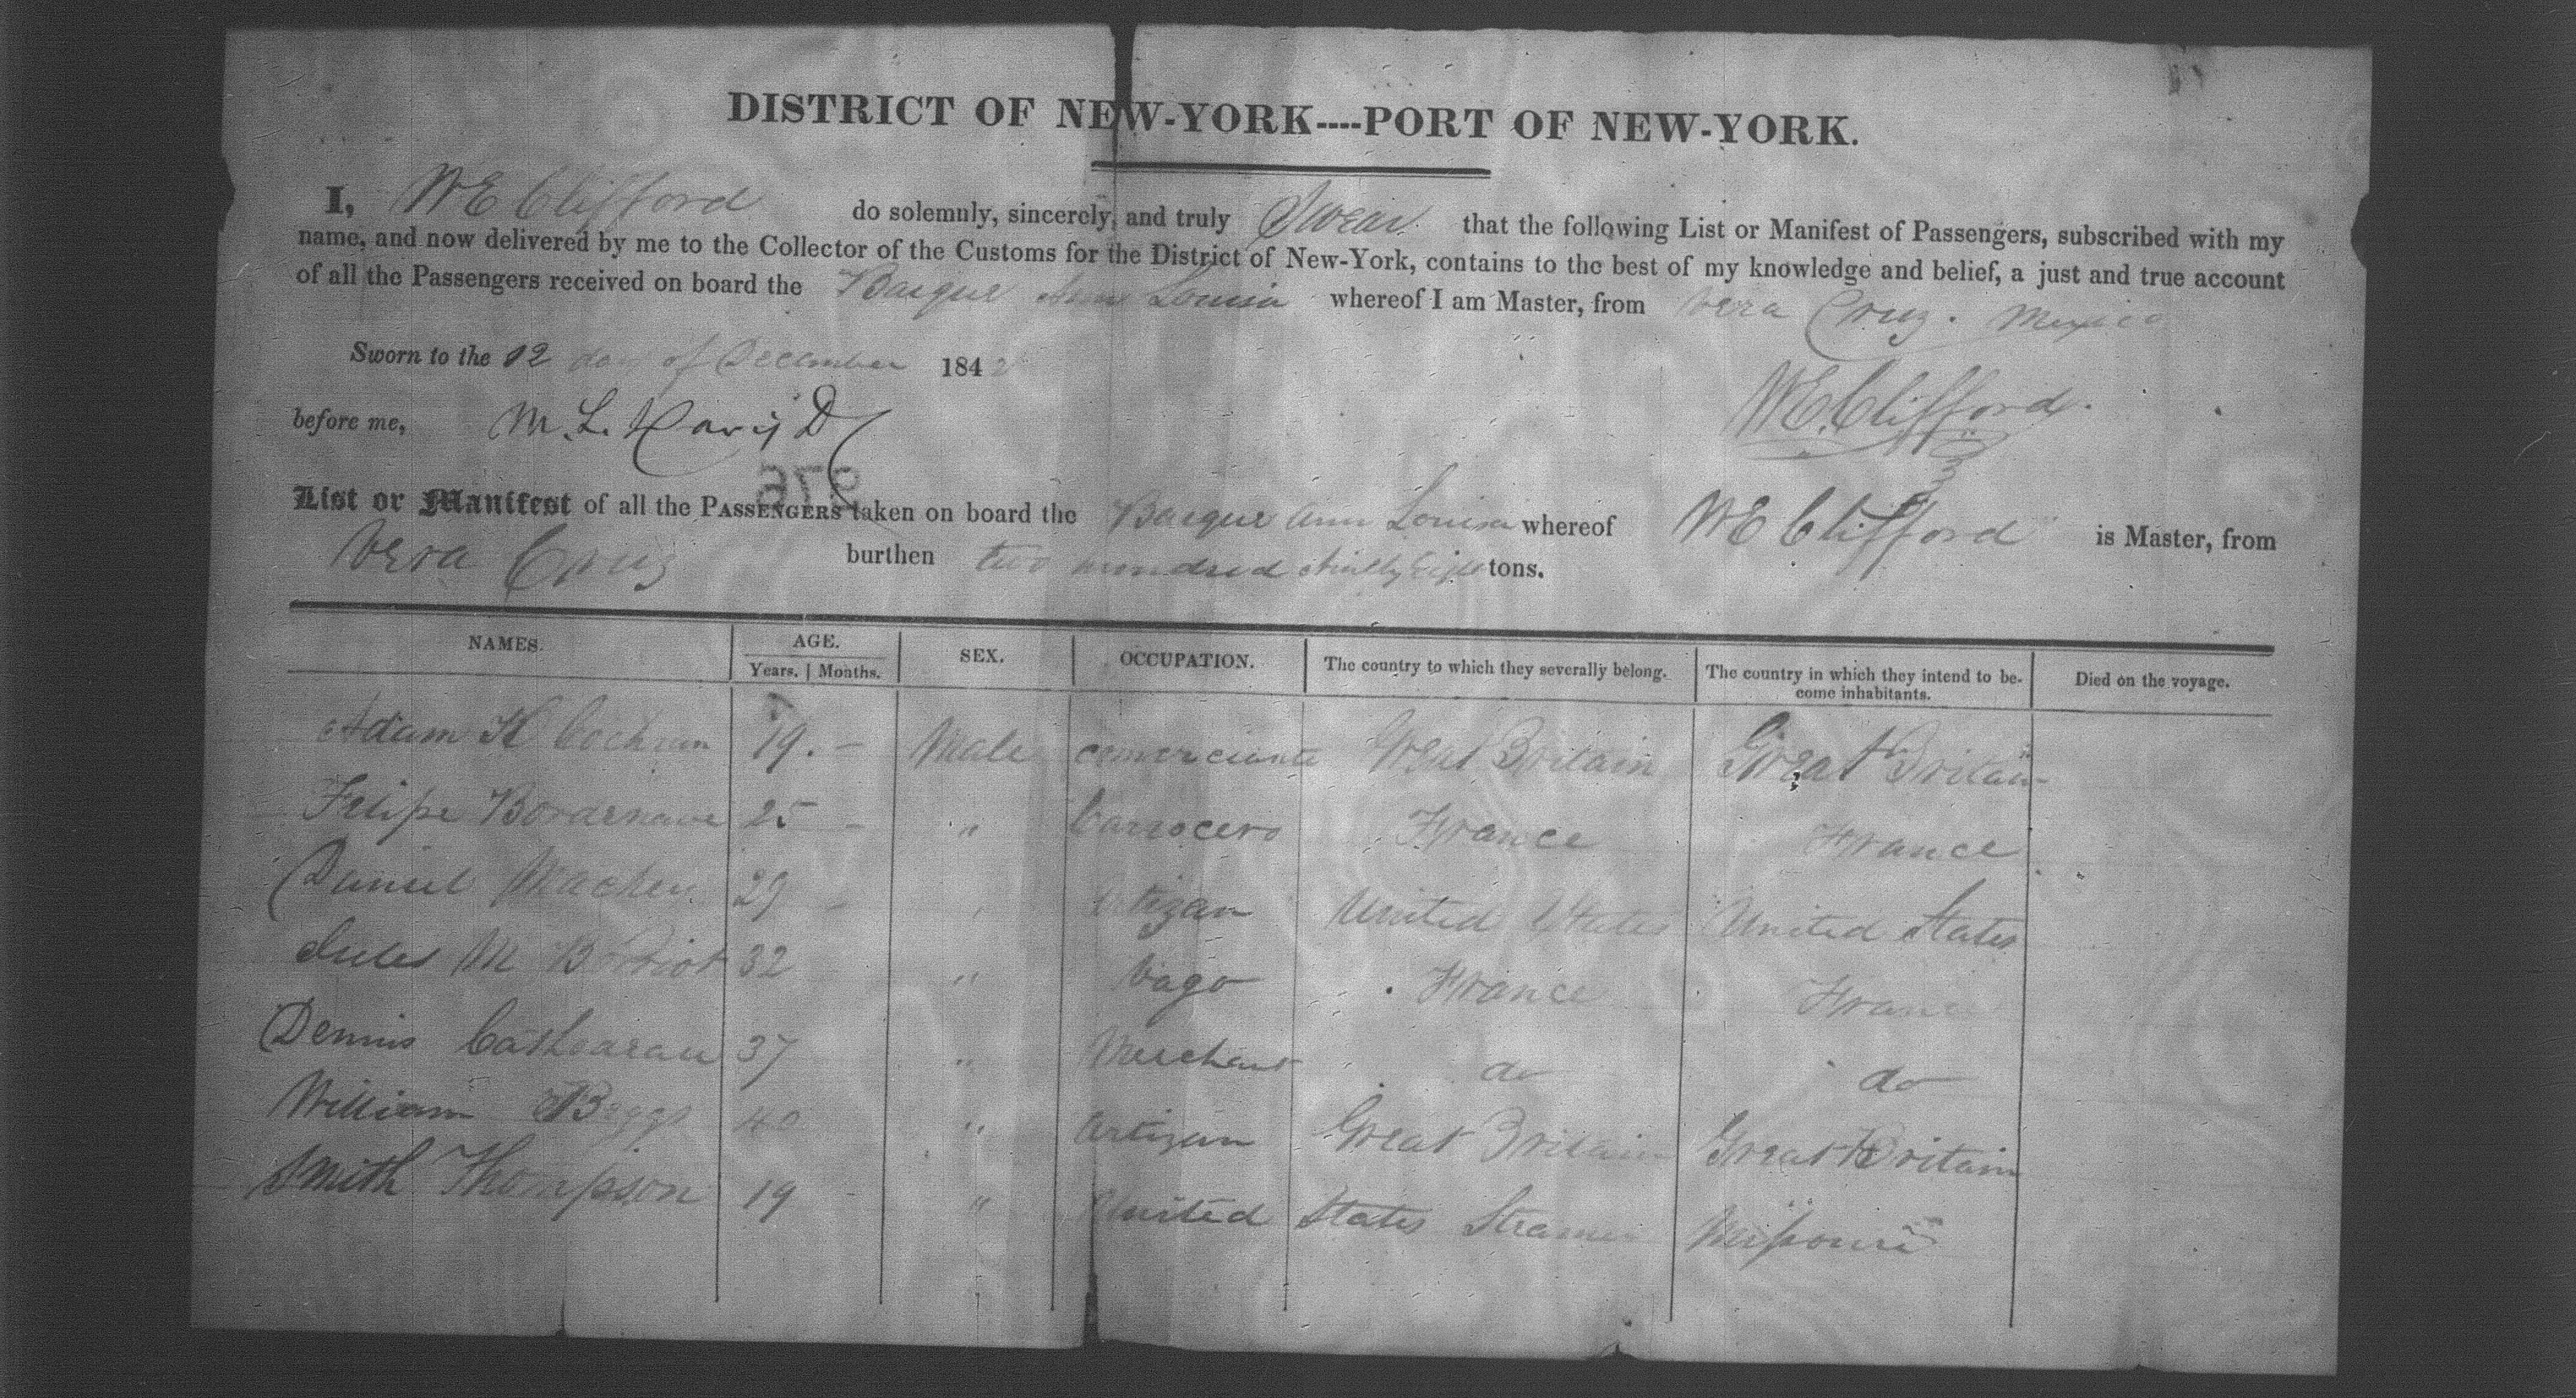 DISTRICT OF NEW-YORK----PORT OF NEW-YORK.
I, WE Clifford do solemnly, sincerely, and truly Swear that the following List or Manifest of Passengers, subscribed with my
name, and now delivered by me to the Collector of the Customs for the District of New-York, contains to the best of my knowledge and belief, a just and true account
of all the Passengers received on board the Barque Ann Louisa whereof I am Master, from Vera Cruz. Mexico
Sworn to the 12 day of December 1842
WE Clifford.
before me, M. L. Davis D
List or Manifest of all the PASSENGERS taken on board the Barque Ann Louisa whereof WE Clifford is Master, from
Vera Cruz burthen two hundred ninety eight tons.
NAMES. AGE. SEX. OCCUPATION. The country to which they severally belong. The country in which they intend to be- Died on the voyage.
Years. Months. come inhabitants.
Adam K Cochran 19. - Male comerciante Great Britain Great Britain
Felipe Bordenave 25 - " Carrocero France France
Daniel 29 - " Artizan United States United States
Jules M 32 " Vago France France
Dennis 37 " Merchant do do
William Beggs 40 " Artizan Great Britain Great Britain
Smith Thompson 19 - " United States Steamer Missouri